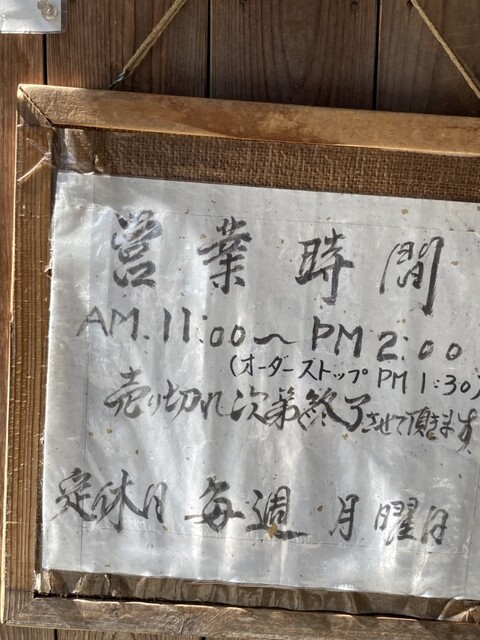 営業時間
AM.11:00〜PM2:00
(オーダーストップ PM1:30)
売り切れ次第終了させて頂きます
定休日 毎週 月曜日